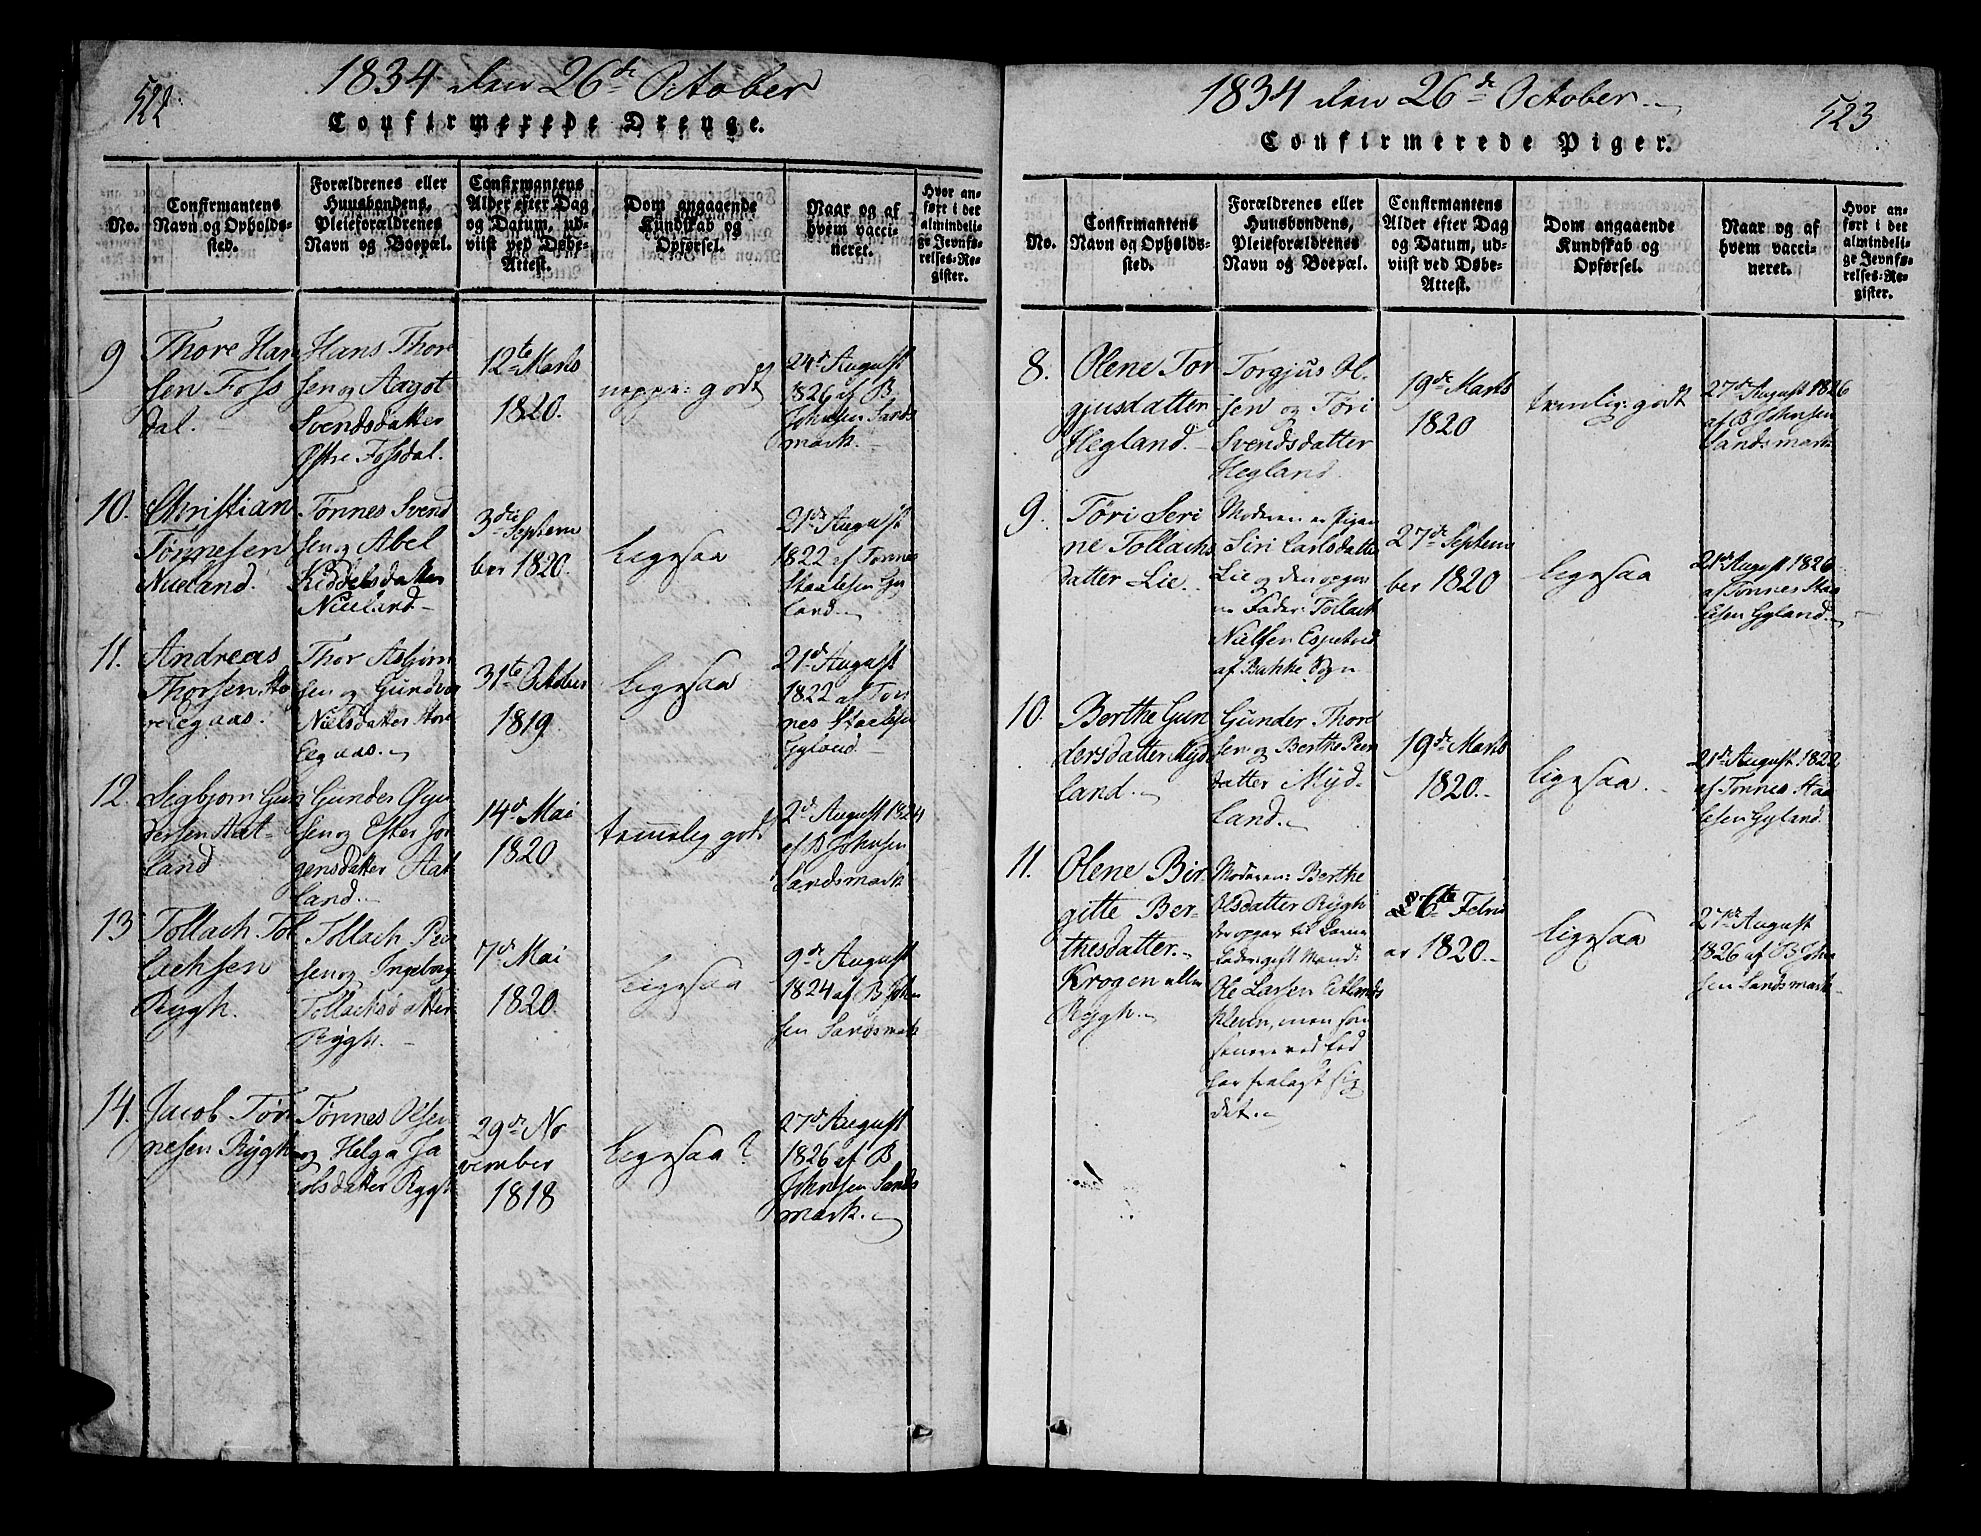 522
1834 den 26de October
Confirmerede Drenge.
No.
Confirmantens
Navn og Opholds-
sted.
Forældrenes eller
Huusbondens,
Pleieforældrenes
Navn og Boepæl.
Confirmantens
Alder efter Dag
og Datum, ud-
viist ved Døbe-
Attest.
Dom angaaende
Kundskab og
Opførsel.
Naar og af
hvem vacci-
neret.
Hvor an-
ført i det
almindeli-
ge Jevnfø-
relses-Re-
gister.
9
Thore Han
sen Foss
dal.
Hans Thore
sen og Aagot
Svendsdatter
Østre Fossdal.
12te Marts
1820.
godt
24de August
1826 af B
Johnsen Sands
mark.
10.
Christian
Tønnesen
Nueland.
Tønnes Svend
sen og Abel
Keddelsdatter
Nueland
3die Septem
ber 1820.
ligesaa
21de August
1822 af Tønnes
Staalesen Gy
land.
11.
Andreas
Thorsen Sto
re Egaas.
Thor Asbjørn
sen og Gundvor
Nielsdatter Store
Egaas.
31te October
1819
ligesaa
21de August
1822 af Tøn
nes Staalesen
Gyland.
12.
Sigbjørn Gun
dersen Aat-
land
Gunder Gun
sen og Ester Jør
gensdatter Aat
land.
14de Mai
1820
temmelig godt
2de August 1824
af B Johnsen
Sandsmark
13
Tollach Tol
lachsen
Rygh.
Tollach Peer
sen og Ingeborg
Tollachsdatter
Rygh.
7de Mai
1820
ligesaa
9de August
1824 af B John
sen Sandsmark
14.
Jacob Tøn
nesen Rygh
Tønnes Olsen
og Helga Ja
cobsdatter Rygh
29de No
vember
1818
ligesaa?
27de August
1826 af B
Johnsen Sands
mark.
1834 den 26de October.
523
Confirmerede Piger.
No.
Confirmantens
Navn og Opholds-
sted.
Forældrenes eller
Huusbondens,
Pleieforældrenes
Navn og Boepæl.
Confirmantens
Alder efter Dag
og Datum, ud-
viist ved Døbe-
Attest.
Dom angaaende
Kundskab og
Opførsel.
Naar og af
hvem vacci-
neret.
Hvor an-
ført i det
almindeli-
ge Jevnfø-
relses-Re-
gister.
8.
Olene Tor
gjusdatter
Hegland.
Torgjus Ol-
sen og Tøri
Svendsdatter
Hegland.
19de Marts
1820
temlig: godt
27de August 1826
af B Johnsen
Sandsmark
9.
Tøri Seri
ne Tollachs
datter Lie.
Moderen er Pigen
Siri Carlsdatter
Lie og den opgiv
ne Fader: Tollach
Nielsen Espetvid
af Bakke Sogn
27de Septem
ber 1820
ligesaa
21de August 1826
af Tønnes Staa
lesen Gyland.
10.
Berthe Gun
dersdatter Myd
land.
Gunder Thore
sen og Berthe Peers
datter Myd-
land.
19de Marts
1820.
ligesaa.
21de August 1822
af Tønnes Staa
lesen Gyland
11.
Olene Bir-
gitte Ber-
thesdatter.
Krogen eller
Rygh.
Moderen: Berthe
Olsdatter Rygh
der opgav til Barne
fader: gift Mand:
Ole Larsen Eetlands
Kleven, men som
senere ved Eed
har fralagt sig
det.
6te Febru
ar 1820.
ligesaa
27de August
1826 af B John
sen Sandsmark